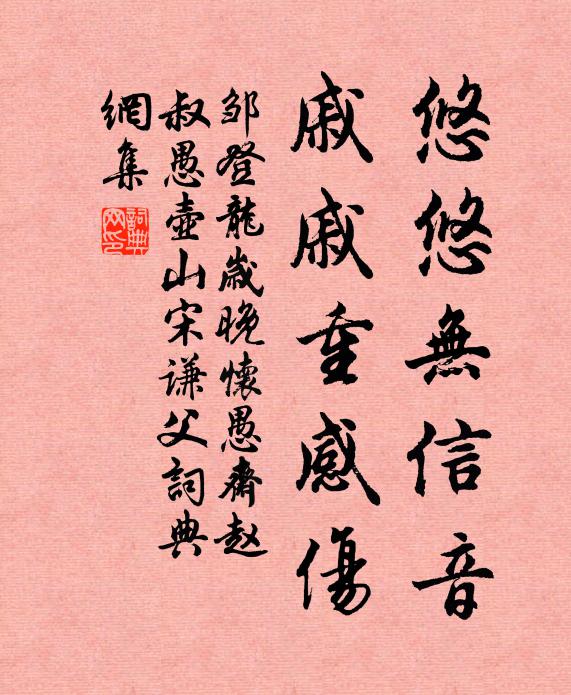 悠悠無信音
戚戚重感傷
邹登龍歲晚懷愚齋赵
叔愚壺山宋謙父詞典
網集
詞典網印